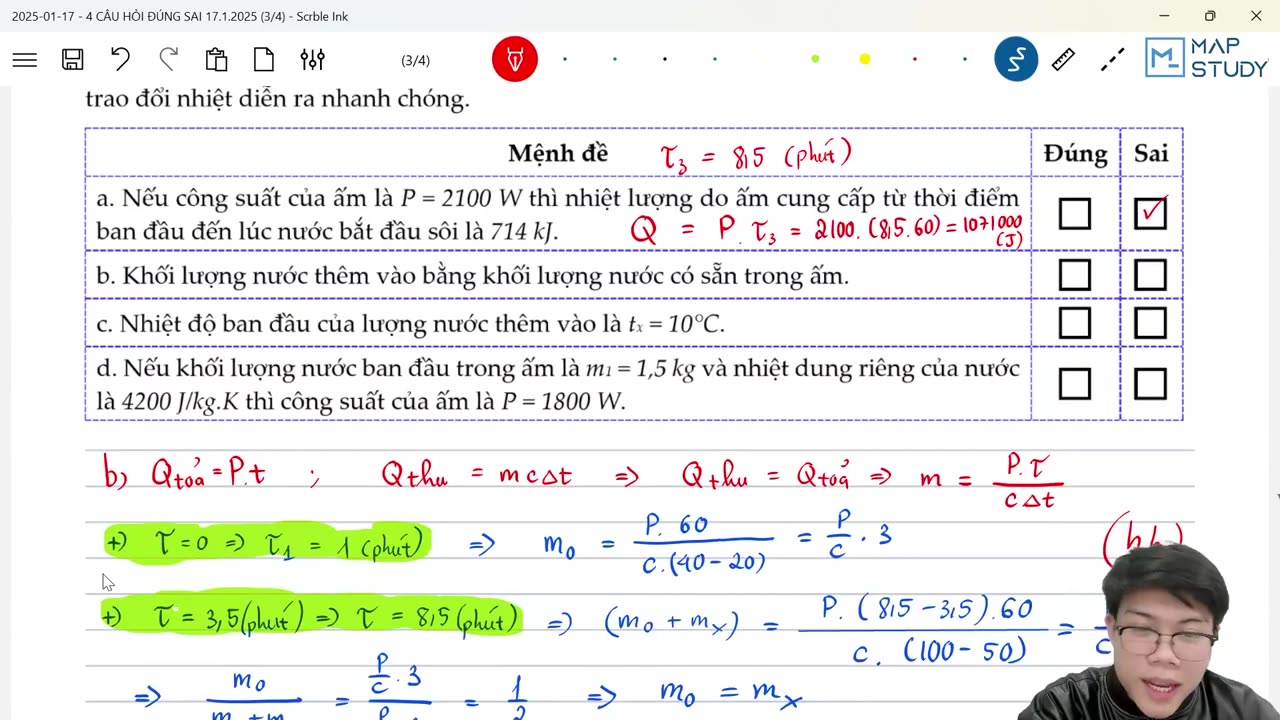 2025-01-17 - 4 CÂU HỎI ĐÚNG SAI 17.1.2025 (3/4) - Scrble Ink
(3/4)
MAP STUDY
trao đổi nhiệt diễn ra nhanh chóng.
Mệnh đề τ₃ = 8,5 (phút) Đúng Sai
a. Nếu công suất của ấm là P = 2100 W thì nhiệt lượng do ấm cung cấp từ thời điểm
ban đầu đến lúc nước bắt đầu sôi là 714 kJ. Q = P. τ₃ = 2100. (8,5.60) = 1071000 (J)
b. Khối lượng nước thêm vào bằng khối lượng nước có sẵn trong ấm.
c. Nhiệt độ ban đầu của lượng nước thêm vào là tₓ = 10°C.
d. Nếu khối lượng nước ban đầu trong ấm là m₁ = 1,5 kg và nhiệt dung riêng của nước
là 4200 J/kg.K thì công suất của ấm là P = 1800 W.
b) Qtoả = P.t ; Qthu = mcΔt => Qthu = Qtoả => m = P.τ / cΔt
+) τ = 0 => τ₁ = 1 (phút) => m₀ = P. 60 / c.(40-20) = P/c . 3
+) τ = 3,5 (phút) => τ = 8,5 (phút) => (m₀ + mₓ) = P. (8,5 - 3,5). 60 / c. (100 - 50) =
=> m₀ = P/c . 3 = 1/2 => m₀ = mₓ